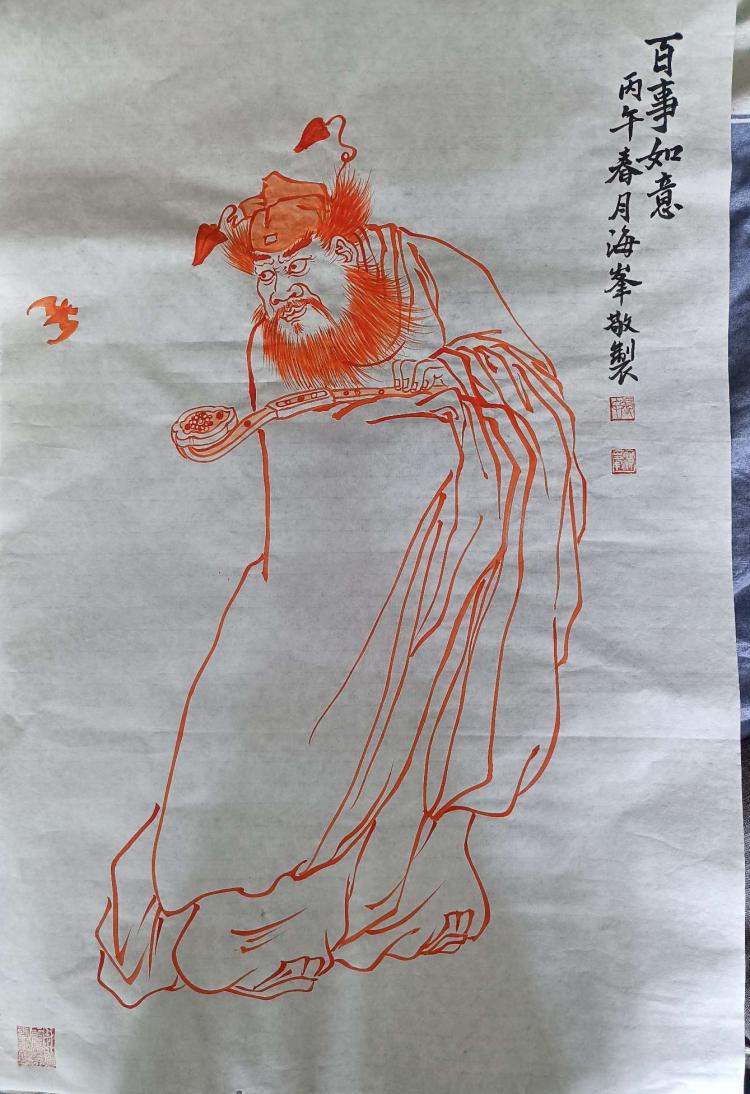 百事如意
丙午春月海峯敬製